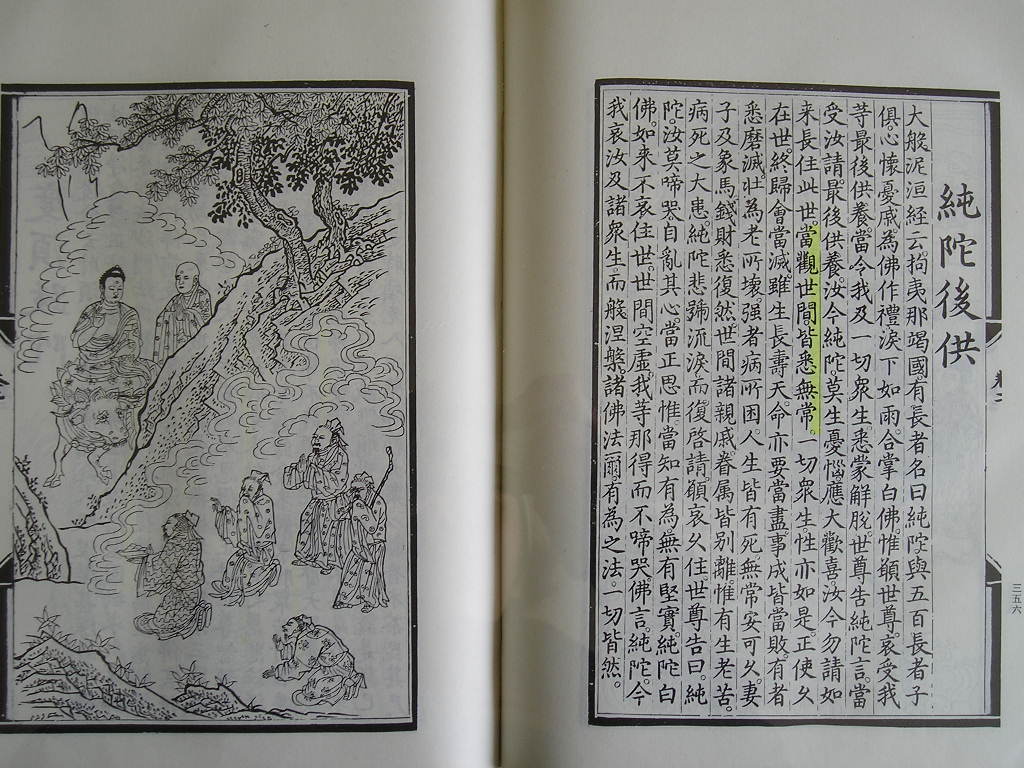 純陀後供
大般泥洹經云拘夷那竭國有長者名曰純陀與五百長者子
俱。心懷憂慼為佛作禮淚下如雨。合掌白佛。惟願世尊。哀受我
等最後供養。當令我及一切眾生悉蒙解脫。世尊告純陀言。當
受汝請。最後供養。汝今純陀莫生憂惱。應大歡喜。汝今勿請如
來長住此世。當觀世間皆悉無常。一切眾生性亦如是。正使久
在世終歸會當滅。雖生長壽天。命亦要當盡。事成皆當敗。有者
悉磨滅。壯為老所壞。强者病所困。人生皆有死。無常安可久。妻
子及象馬。錢財悉復然。世間諸親戚。眷屬皆別離。惟有生老苦。
病死之大患。純陀悲號流淚。而復啓請。願哀久住。世尊告曰。純
陀汝莫啼哭。自亂其心。當正思惟。當知有為。無有堅實。純陀白
佛。如來不哀住世。世間空虛。我等那得而不啼哭。佛言。純陀。今
我哀汝及諸眾生。而般涅槃。諸佛法爾。有為之法。一切皆然。
卷二
三五六